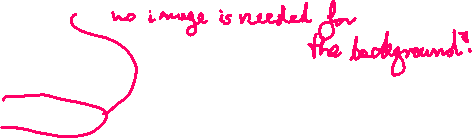 no image is needed for
the background?